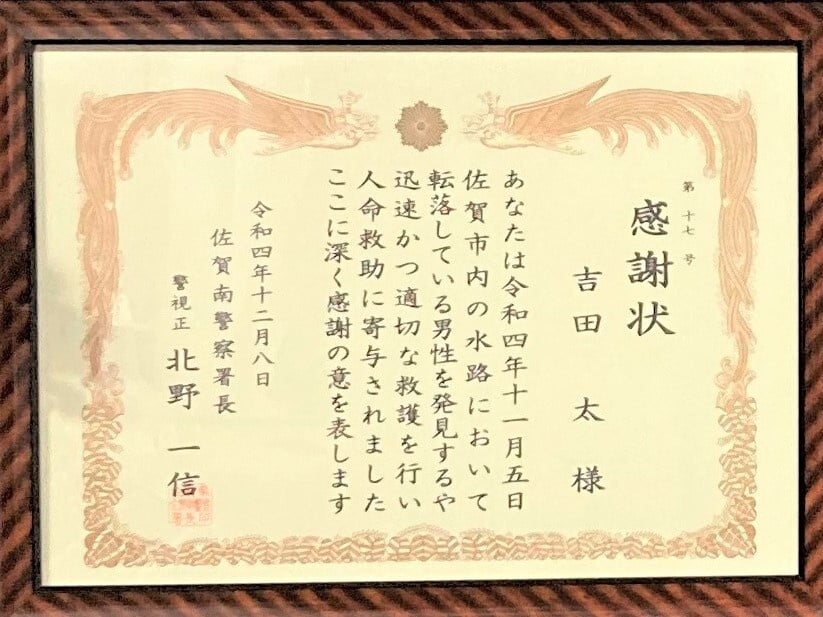 第十七号
感謝状
吉田太様
あなたは令和四年十一月五日
佐賀市内の水路において
転落している男性を発見するや
迅速かつ適切な救護を行い
人命救助に寄与されました
ここに深く感謝の意を表します
令和四年十二月八日
佐賀南警察署長
警視正 北野一信